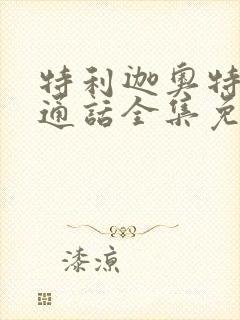 特利迦奥特
通话全集免
漆凉